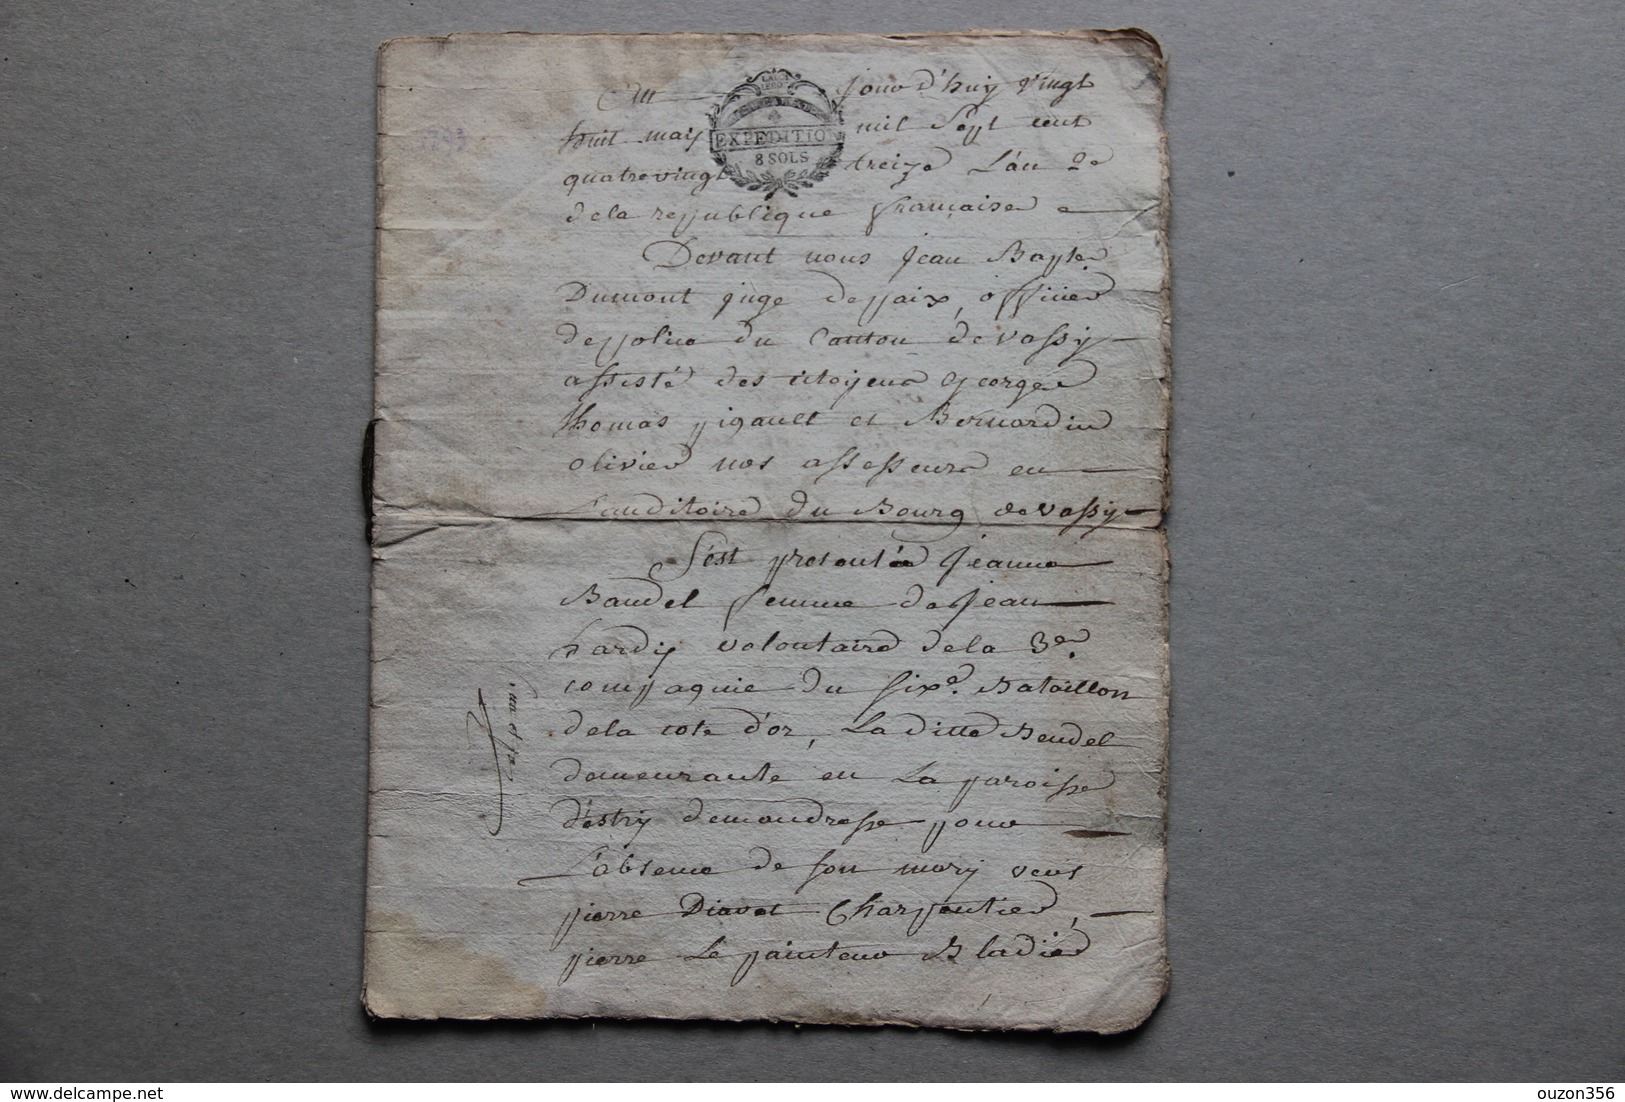 1793
LA LOI
EXPEDITION
8 SOLS
jourd'huy vingt
huit may mil sept cent
quatrevingt treize L'an 2e
dela republique française
Devant nous jean Bapte
Dumont juge depaix, officier
depolice du Canton de vassy
assisté des citoyens george
thomas pigault et Bernardin
olivier nos assesseurs en
L'auditoire du Bourg de vassy
s'est presentée jeanne
Baudel femme de jean
hardy volontaire dela 3e
compagnie du sixe. Bataillon
dela cote d'or, La ditte Beudel
demeurante en La paroisse
d'estry demandresse pour
L'absence de son mary vers
pierre Diavet Charpentier,
pierre Le painteur Bladier
delcampe.net
ouzon356